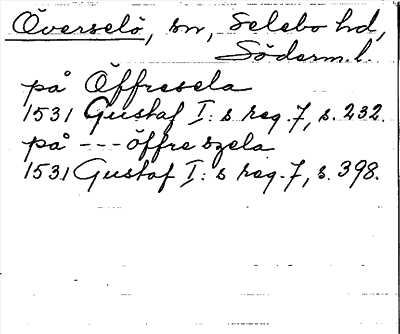 Överselö, sn, Selebo hd,
Söderm.l.
på Öffresela
1531 Gustaf I:s reg. 7, s. 232.
på --- öffre szela
1531 Gustaf I:s reg. 7, s. 398.